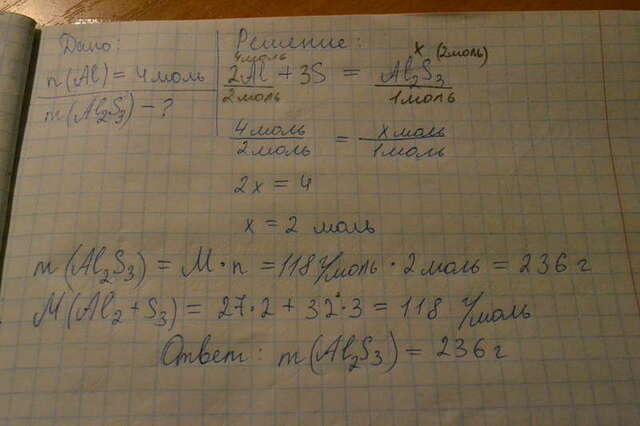 Дано:
n(Al) = 4 моль
m(Al₂S₃) - ?
Решение:
4 моль x (2 моль)
2Al + 3S = Al₂S₃
2 моль 1 моль
4 моль / 2 моль = x моль / 1 моль
2x = 4
x = 2 моль
m(Al₂S₃) = M · n = 118 г/моль · 2 моль = 236 г
M(Al₂ + S₃) = 27 · 2 + 32 · 3 = 118 г/моль
Ответ: m(Al₂S₃) = 236 г